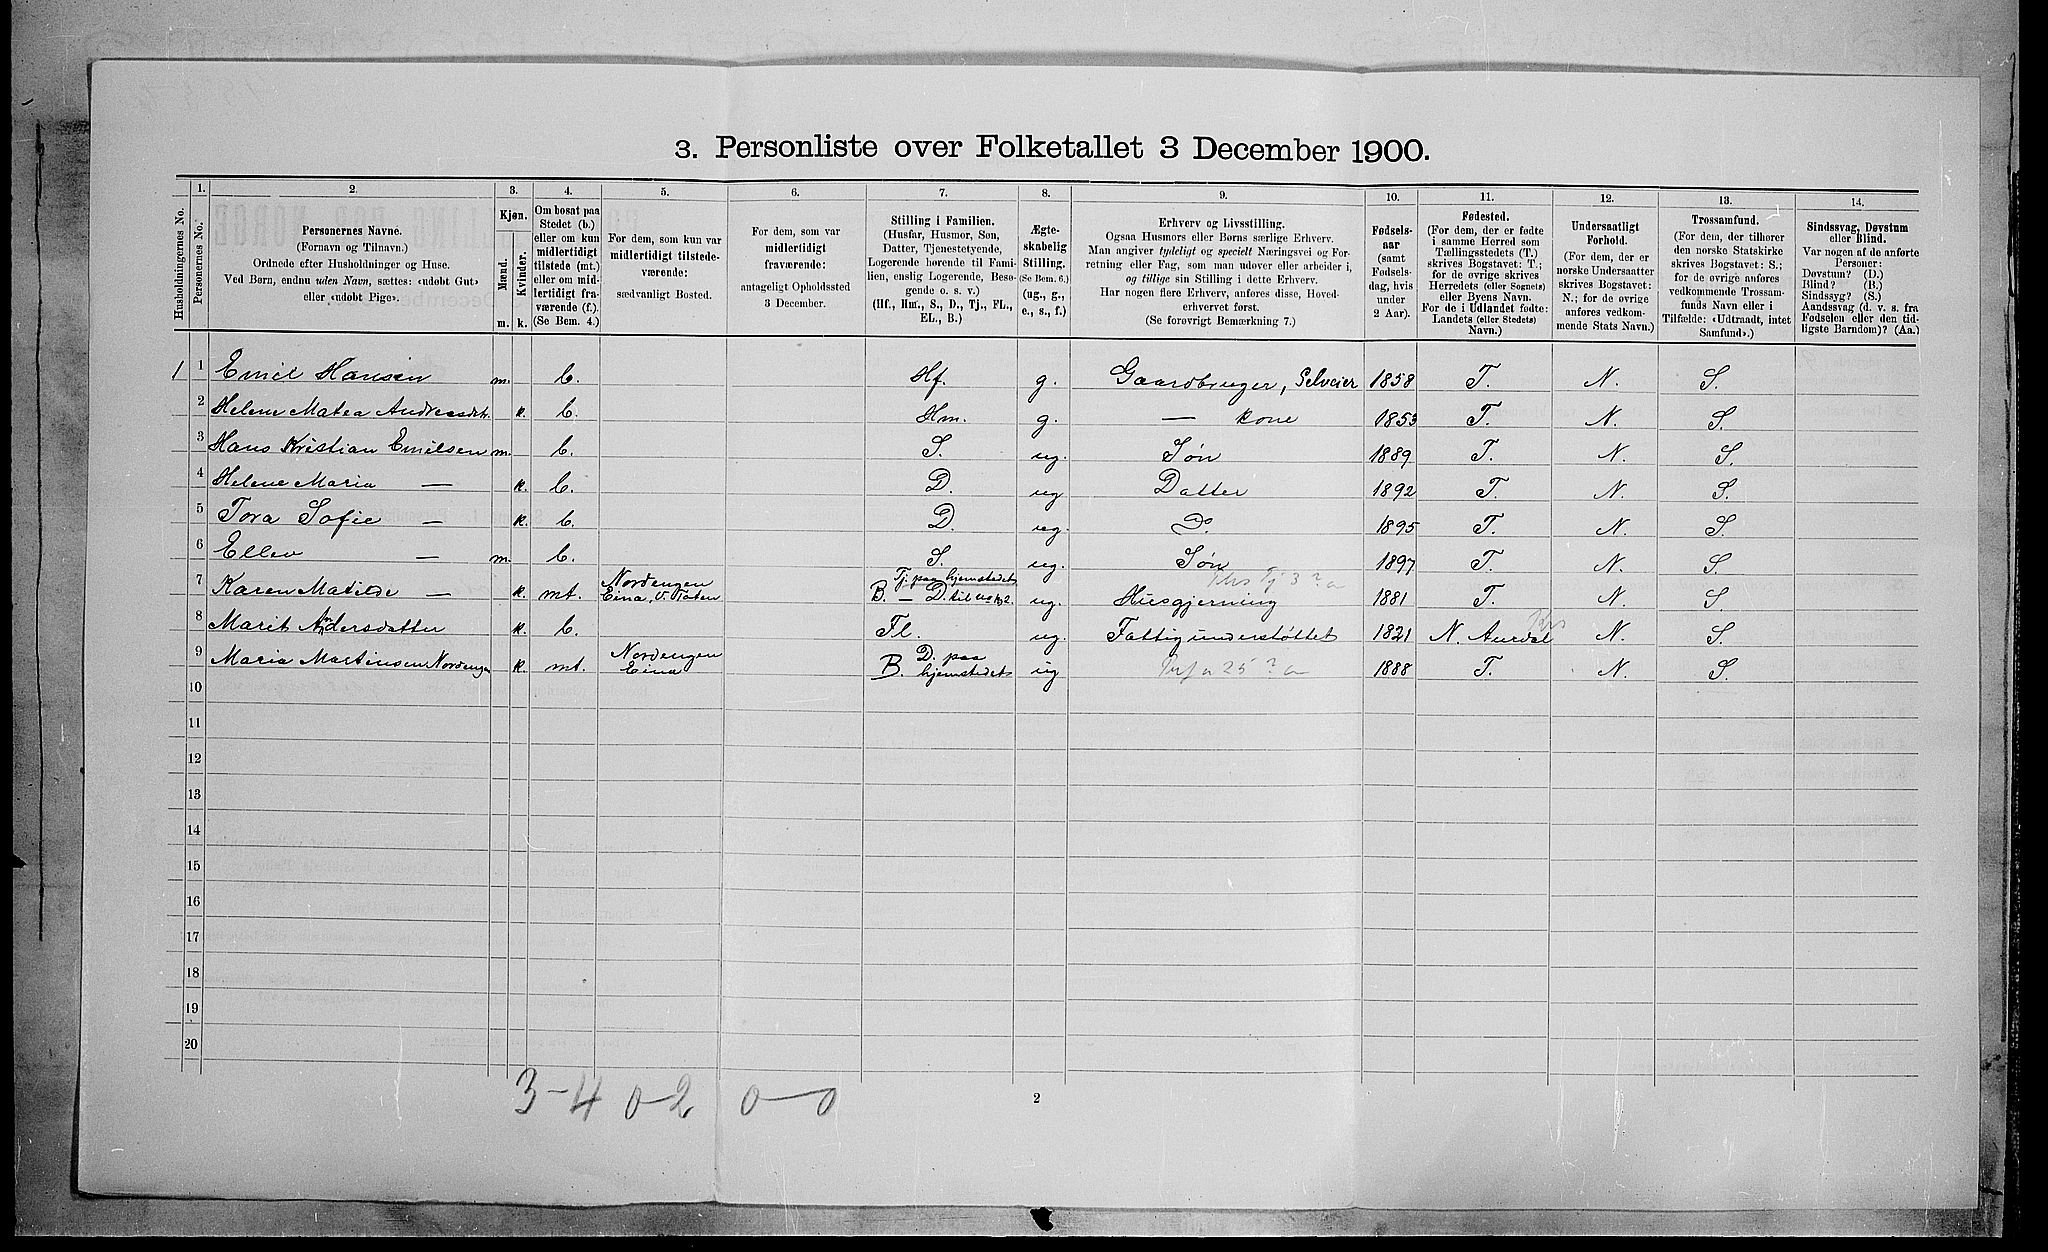 3. Personliste over Folketallet 3 December 1900.
Husholdningernes No.
1.
Personernes No.
2.
Personernes Navne.
(Fornavn og Tilnavn.)
Ordnede efter Husholdninger og Huse.
Ved Børn, endnu uden Navn, sættes: «udøbt Gut»
eller «udøbt Pige».
3.
Kjøn.
Mænd.
Kvinder.
m. k.
4.
Om bosat paa
Stedet (b.)
eller om kun
midlertidigt
tilstede (mt.)
eller om mid-
lertidigt fra-
værende (f.).
(Se Bem. 4.)
5.
For dem, som kun var
midlertidigt tilstede-
værende:
sædvanligt Bosted.
6.
For dem, som var
midlertidigt
fraværende:
antageligt Opholdssted
3 December.
7.
Stilling i Familien.
(Husfar, Husmor, Søn,
Datter, Tjenestetyende,
Logerende hørende til Fami-
lien, enslig Logerende, Besø-
gende o. s. v.)
(Hf., Hm., S., D., Tj., FL.,
EL., B.)
8.
Ægte-
skabelig
Stilling.
(Se Bem. 6.)
(ug., g.,
e., s., f.)
9.
Erhverv og Livsstilling.
Ogsaa Husmors eller Børns særlige Erhverv.
Man angiver tydeligt og specielt Næringsvei og For-
retning eller Fag, som man udøver eller arbeider i,
og tillige sin Stilling i dette Erhverv.
Har nogen flere Erhverv, anføres disse, Hoved-
erhvervet først.
(Se forøvrigt Bemærkning 7.)
10.
Fødsels-
aar
(samt
Fødsels-
dag, hvis
under
2 Aar).
11.
Fødested.
(For dem, der er fødte
i samme Herred som
Tællingsstedets (T.)
skrives Bogstavet: T.;
for de øvrige skrives
Herredets (eller Sognets)
eller Byens Navn.
For de i Udlandet fødte:
Landets (eller Stedets)
Navn.)
12.
Undersaatligt
Forhold.
(For dem, der er
norske Undersaatter
skrives Bogstavet:
N.; for de øvrige
anføres vedkom-
mende Stats Navn.)
13.
Trossamfund.
(For dem, der tilhører
den norske Statskirke
skrives Bogstavet: S.;
for de øvrige anføres
vedkommende Trossam-
funds Navn eller i
Tilfælde: «Udtraadt, intet
Samfund».)
14.
Sindssvag, Døvstum
eller Blind.
Var nogen af de anførte
Personer:
Døvstum? (D.)
Blind? (B.)
Sindssyg? (S.)
Aandssvag (d. v. s. fra
Fødselen eller den tid-
ligste Barndom)? (Aa.)
1 1 Emil Hansen m. b. Hf. g. Gaardbruger, Selveier 1858 T. N. S.
2 Helene Matea Andreasdtr. k. b. Hm. g. — kone 1853 T. N. S.
3 Hans Kristian Emilsen m. b. S. ug. Søn 1889 T. N. S.
4 Helene Maria — k. b. D. ug Datter 1892 T. N. S.
5 Tora Sofie — k. b. D. ug. Do 1895 T. N. S.
6 Ellev — m. b. S. ug. Søn 1897 T. N. S.
7 Karen Matilde — k. mt. Nordengen Eina, V. Toten Tj. paa hjemstedet B. — D. til No 1 & 2. ug. Husgjerning 1881 T. N. S.
8 Marit Andersdatter k. b. Fl. ug. Fattigunderstøttet 1821 N. Aurdal N. S.
9 Maria Martinsen Nordengen k. mt. Nordengen Eina B. D. paa hjemstedet ug 1888 T. N. S.
10
11
12
13
14
15
16
17
18
19
20
3-4 0-2 0-0
2